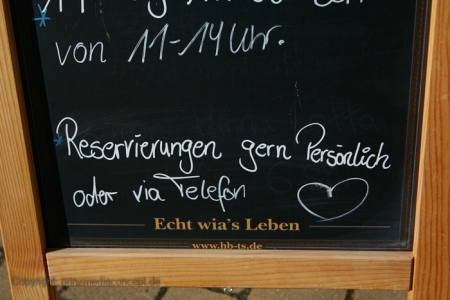 von 11-14 Uhr.
* Reservierungen gern Persönlich
oder via Telefon
Echt wia's Leben
www.hb-ts.de